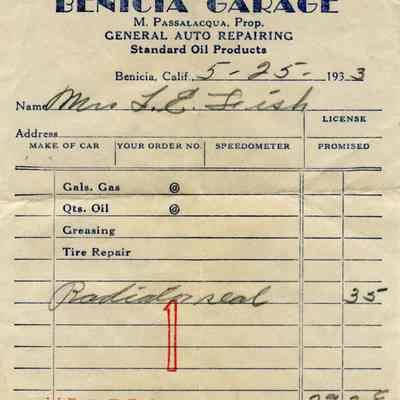 BENICIA GARAGE
M. PASSALACQUA, Prop.
GENERAL AUTO REPAIRING
Standard Oil Products
Benicia, Calif., 5-25- 1933
Name Mrs L. E. Fish
LICENSE
Address
MAKE OF CAR YOUR ORDER NO. SPEEDOMETER PROMISED
Gals. Gas @
Qts. Oil @
Greasing
Tire Repair
Radiator seal 35
1